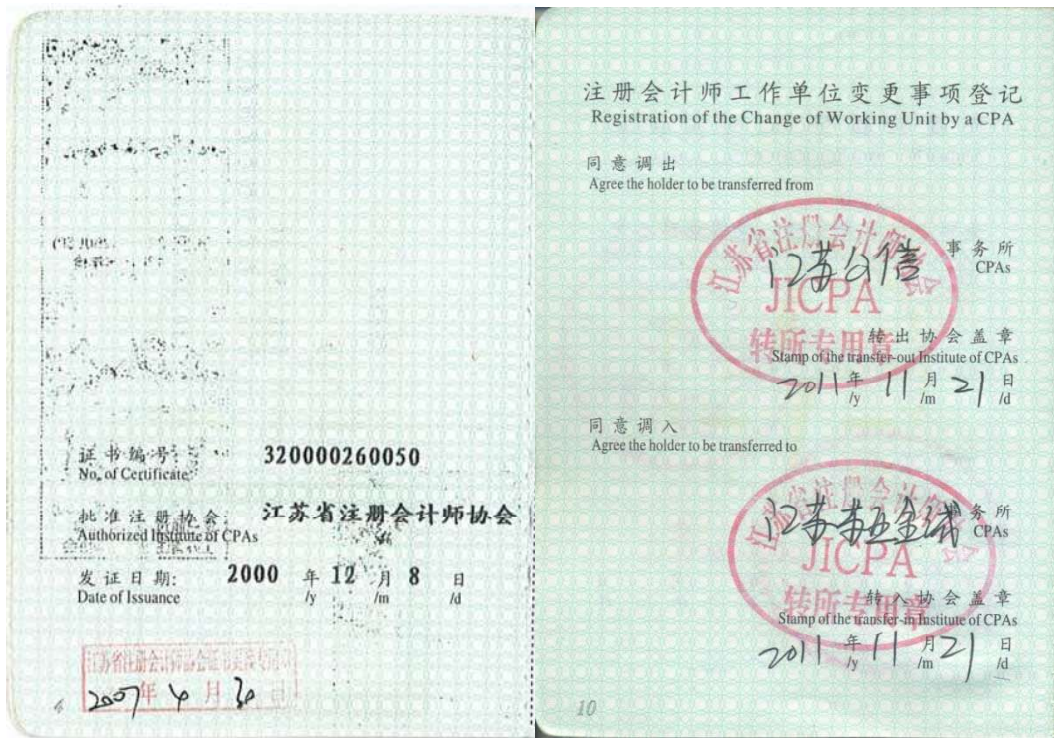 证书编号:
No. of Certificate
320000260050
批准注册协会
Authorized Institute of CPAs
江苏省注册会计师协会
发证日期:
Date of Issuance
2000 年 12 月 8 日
/y /m /d
2007年 4 月 30 日
4
注册会计师工作单位变更事项登记
Registration of the Change of Working Unit by a CPA
同意调出
Agree the holder to be transferred from
江苏省注册会计师协会
JICPA
转所专用章
江苏公信
事务所
CPAs
转出协会盖章
Stamp of the transfer-out Institute of CPAs
2011 年 11 月 21 日
/y /m /d
同意调入
Agree the holder to be transferred to
江苏省注册会计师协会
JICPA
转所专用章
江苏
事务所
CPAs
转入协会盖章
Stamp of the transfer-in Institute of CPAs
2011 年 11 月 21 日
/y /m /d
10